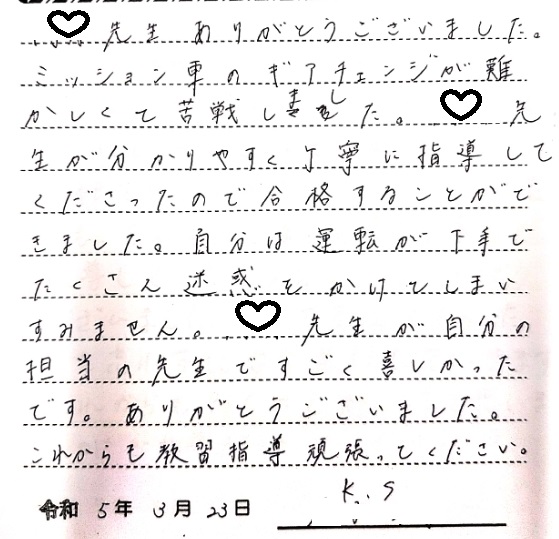 先生ありがとうございました。
ミッション車のギアチェンジが難
かしくて苦戦しました。先
生が分かりやすく丁寧に指導して
くださったので合格することがで
きました。自分は運転が下手で
たくさん迷惑をかけてしまい
すみません。先生が自分の
担当の先生ですごく喜しかった
です。ありがとうございました。
これからも教習指導頑張ってください。
K.S
令和5年3月23日